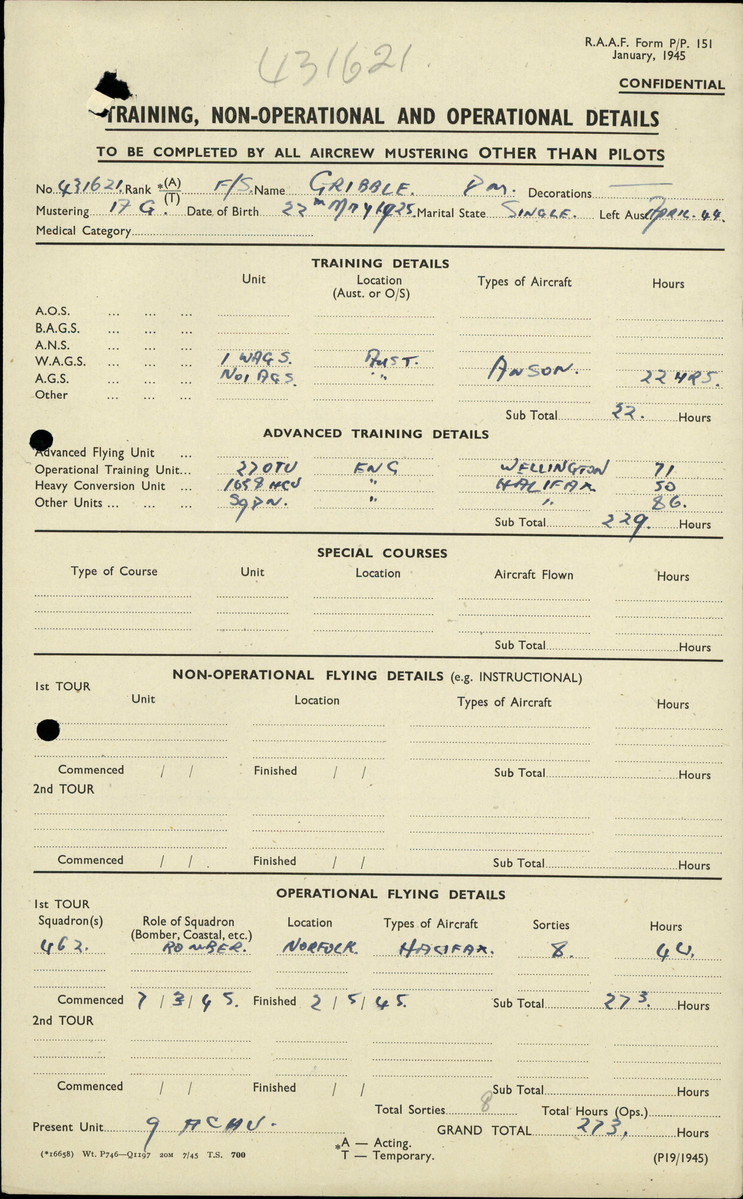 R.A.A.F. Form P/P. 151
January, 1945
431621.
CONFIDENTIAL
TRAINING, NON-OPERATIONAL AND OPERATIONAL DETAILS
TO BE COMPLETED BY ALL AIRCREW MUSTERING OTHER THAN PILOTS
No. 431621. Rank *(A)/(T) F/S. Name GRIBBLE. Decorations
Mustering Date of Birth 22 MAY 1925. Marital State SINGLE. Left Aust. APRIL. 44.
Medical Category
TRAINING DETAILS
Unit Location (Aust. or O/S) Types of Aircraft Hours
A.O.S. ... ... ...
B.A.G.S. ... ... ...
A.N.S. ... ... ...
W.A.G.S. ... ... ... 1 WAGS. AUST.
A.G.S. ... ... ... No1 AGS. " ANSON. 22 HRS.
Other ... ... ...
Sub Total 22. Hours
ADVANCED TRAINING DETAILS
Advanced Flying Unit ...
Operational Training Unit... 27 OTU ENG WELLINGTON 71
Heavy Conversion Unit ... 1658 HCU " HALIFAX 50
Other Units ... ... ... SQDN. " " 86.
Sub Total 229. Hours
SPECIAL COURSES
Type of Course Unit Location Aircraft Flown Hours
Sub Total Hours
NON-OPERATIONAL FLYING DETAILS (e.g. INSTRUCTIONAL)
1st TOUR
Unit Location Types of Aircraft Hours
Commenced / / Finished / / Sub Total Hours
2nd TOUR
Commenced / / Finished / / Sub Total Hours
OPERATIONAL FLYING DETAILS
1st TOUR
Squadron(s) Role of Squadron (Bomber, Coastal, etc.) Location Types of Aircraft Sorties Hours
462. BOMBER. NORFOLK. HALIFAX. 8. 44.
Commenced 7 / 3 / 45. Finished 2 / 5 / 45. Sub Total 273. Hours
2nd TOUR
Commenced / / Finished / / Sub Total Hours
Total Sorties 8 Total Hours (Ops.)
Present Unit 9 ACHU. GRAND TOTAL 273. Hours
*A — Acting.
T — Temporary.
(*16658) Wt. P746—Q1197 20M 7/45 T.S. 700
(P19/1945)